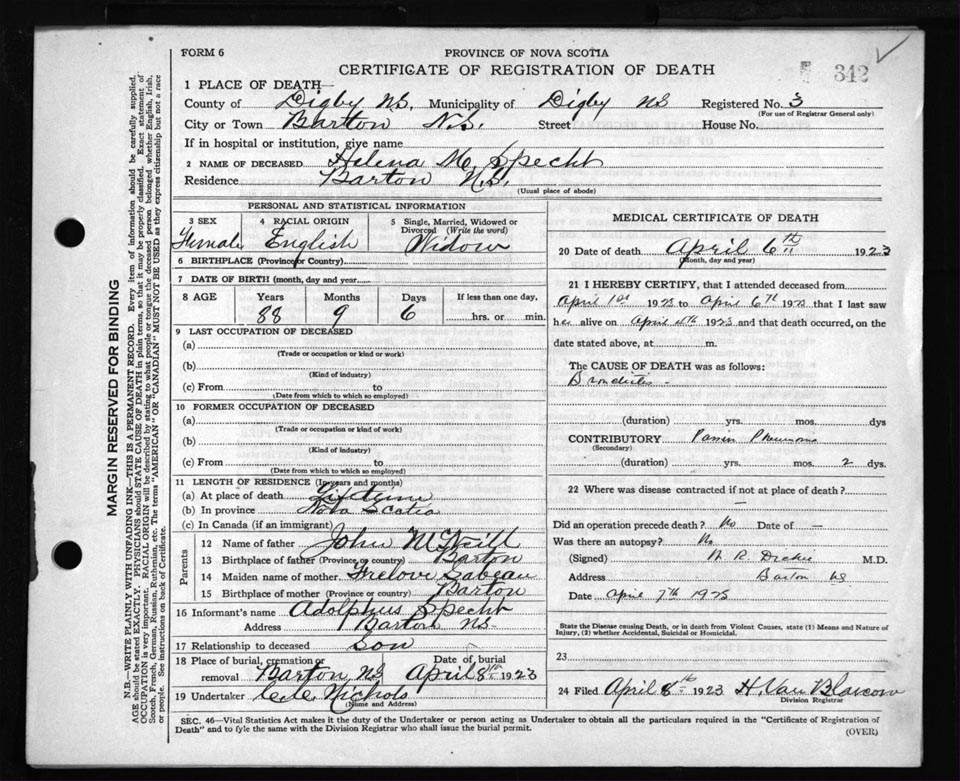 FORM 6
PROVINCE OF NOVA SCOTIA
CERTIFICATE OF REGISTRATION OF DEATH
342
1 PLACE OF DEATH—
County of Digby N.S. Municipality of Digby NS Registered No. 3
(For use of Registrar General only)
City or Town Barton N.S. Street House No.
If in hospital or institution, give name
2 NAME OF DECEASED Helena M. Specht
Residence Barton N.S.
(Usual place of abode)
PERSONAL AND STATISTICAL INFORMATION
3 SEX 4 RACIAL ORIGIN 5 Single, Married, Widowed or Divorced (Write the word)
Female English Widow
6 BIRTHPLACE (Province or Country)
7 DATE OF BIRTH (month, day and year)
8 AGE Years Months Days If less than one day,
88 9 6 hrs. or min.
9 LAST OCCUPATION OF DECEASED
(a)
(Trade or occupation or kind or work)
(b)
(Kind of industry)
(c) From to
(Date from which to which so employed)
10 FORMER OCCUPATION OF DECEASED
(a)
(Trade or occupation or kind of work)
(b)
(Kind of industry)
(c) From to
(Date from which to which so employed)
11 LENGTH OF RESIDENCE (In years and months)
(a) At place of death Lifetime
(b) In province Nova Scotia
(c) In Canada (if an immigrant)
Parents
12 Name of father John McNeill
13 Birthplace of father (Province or country) Barton
14 Maiden name of mother Frelove Sabeau
15 Birthplace of mother (Province or country) Barton
16 Informant's name Adolphus Specht
Address Barton NS
17 Relationship to deceased Son
18 Place of burial, cremation or removal Barton NS Date of burial April 8th 1923
19 Undertaker Nichols
(Name and Address)
MEDICAL CERTIFICATE OF DEATH
20 Date of death April 6th 1923
(Month, day and year)
21 I HEREBY CERTIFY, that I attended deceased from
April 1st 1923 to April 6th 1923 that I last saw
her alive on April 1923 and that death occurred, on the
date stated above, at m.
The CAUSE OF DEATH was as follows:
Bronchitis
(duration) yrs. mos. dys
CONTRIBUTORY Pneumonia
(Secondary)
(duration) yrs. mos. 2 dys.
22 Where was disease contracted if not at place of death?
Did an operation precede death? No Date of —
Was there an autopsy? No
(Signed) R. Dickie M.D.
Address Barton NS
Date April 7th 1923
State the Disease causing Death, or in death from Violent Causes, state (1) Means and Nature of
Injury, (2) whether Accidental, Suicidal or Homicidal.
23
24 Filed April 8th 1923 H. Van Blarcom
Division Registrar
SEC. 46—Vital Statistics Act makes it the duty of the Undertaker or person acting as Undertaker to obtain all the particulars required in the "Certificate of Registration of
Death" and to fyle the same with the Division Registrar who shall issue the burial permit.
(OVER)
MARGIN RESERVED FOR BINDING
N.B.—WRITE PLAINLY WITH UNFADING INK—THIS IS A PERMANENT RECORD. Every item of information should be carefully supplied.
AGE should be stated EXACTLY. PHYSICIANS should STATE CAUSE OF DEATH in plain terms, so that it may be properly classified. Exact statement of
OCCUPATION is very important. RACIAL ORIGIN will be described by stating to what people or tongue the deceased person belonged whether English, Irish,
Scotch, French, German, Russian, Ruthenian, etc. The terms "AMERICAN" OR "CANADIAN" MUST NOT BE USED as they express citizenship but not a race
or people. See instructions on back of Certificate.